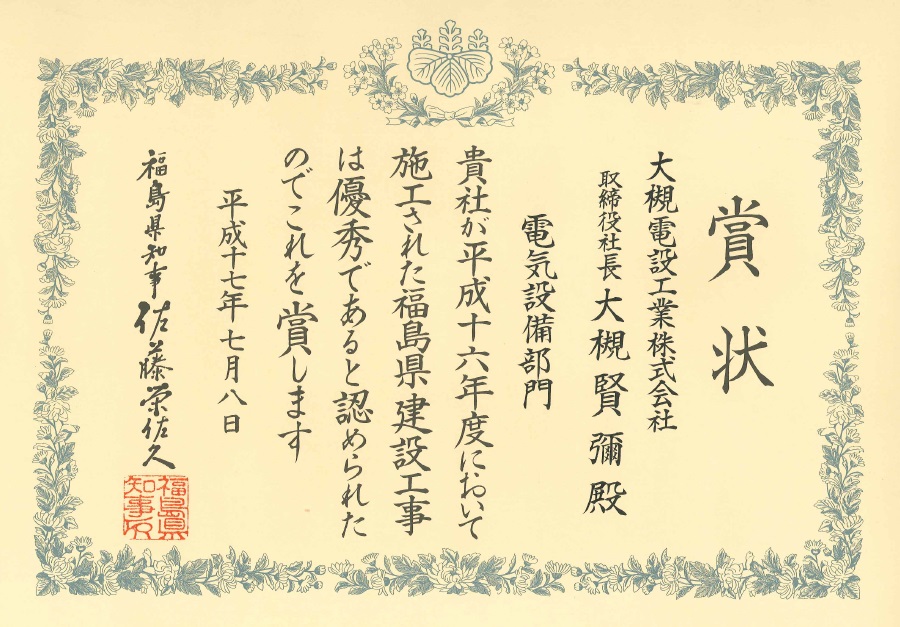 賞状
大槻電設工業株式会社
取締役社長 大槻賢彌殿
電気設備部門
貴社が平成十六年度において
施工された福島県建設工事
は優秀であると認められた
のでこれを賞します
平成十七年七月八日
福島県知事 佐藤栄佐久
福島県
知事印